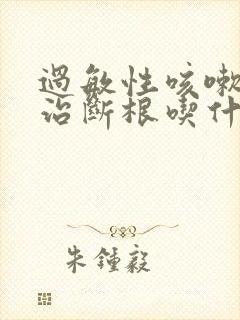 過敏性咳嗽
治斷根喫什
朱鍾毅